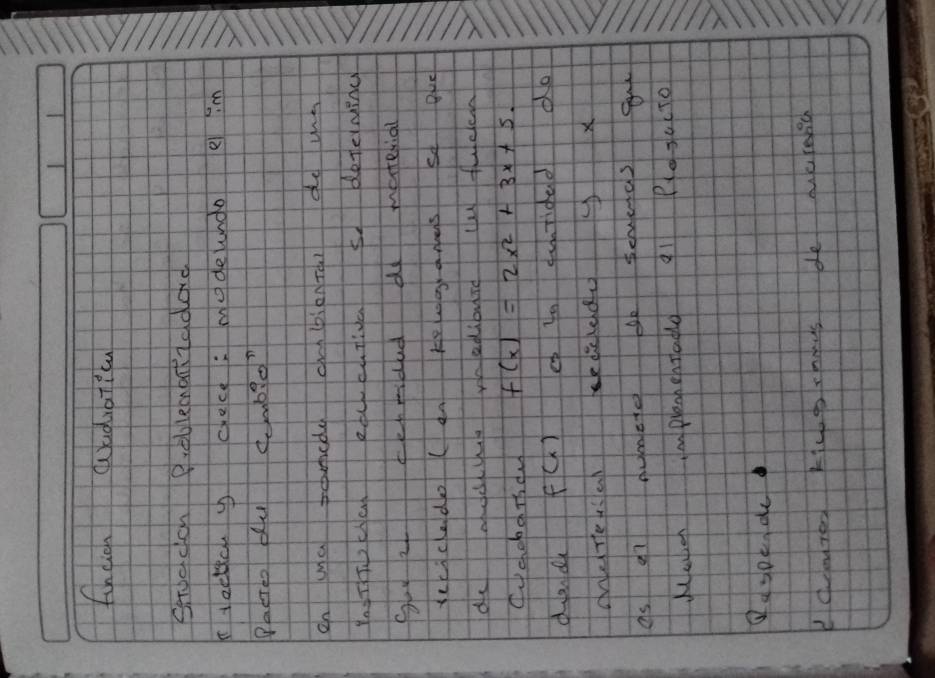 funcion cuadratica
Situacion Problematizadora
"recicla y crece: modelando el im
Pacto del cambio"
en una jornada ambiental de una
institucion educativa se determina
que la cantidad de material
reciclado (en kilogramos se que
de modelar mediante la funcion
Cuadratica f(x) = 2x2 + 3x + 5.
donde f(x) es la cantidad do
material reciclado y x
es el numero de semanas que
lleva implementado el Proyecto
Responde
¿Cuantos kilogramos de material